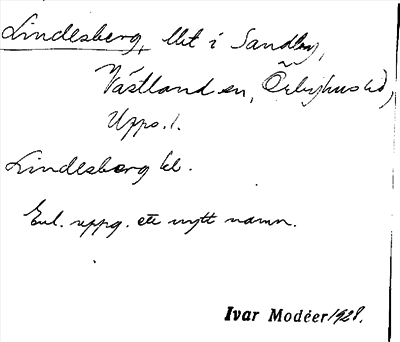 Lindesberg, llt i Sandby,
Västland sn, Örbyhus hd,
Upps. l.
Lindesberg kl.
Enl. uppg. ett nytt namn.
Ivar Modéer 1928.